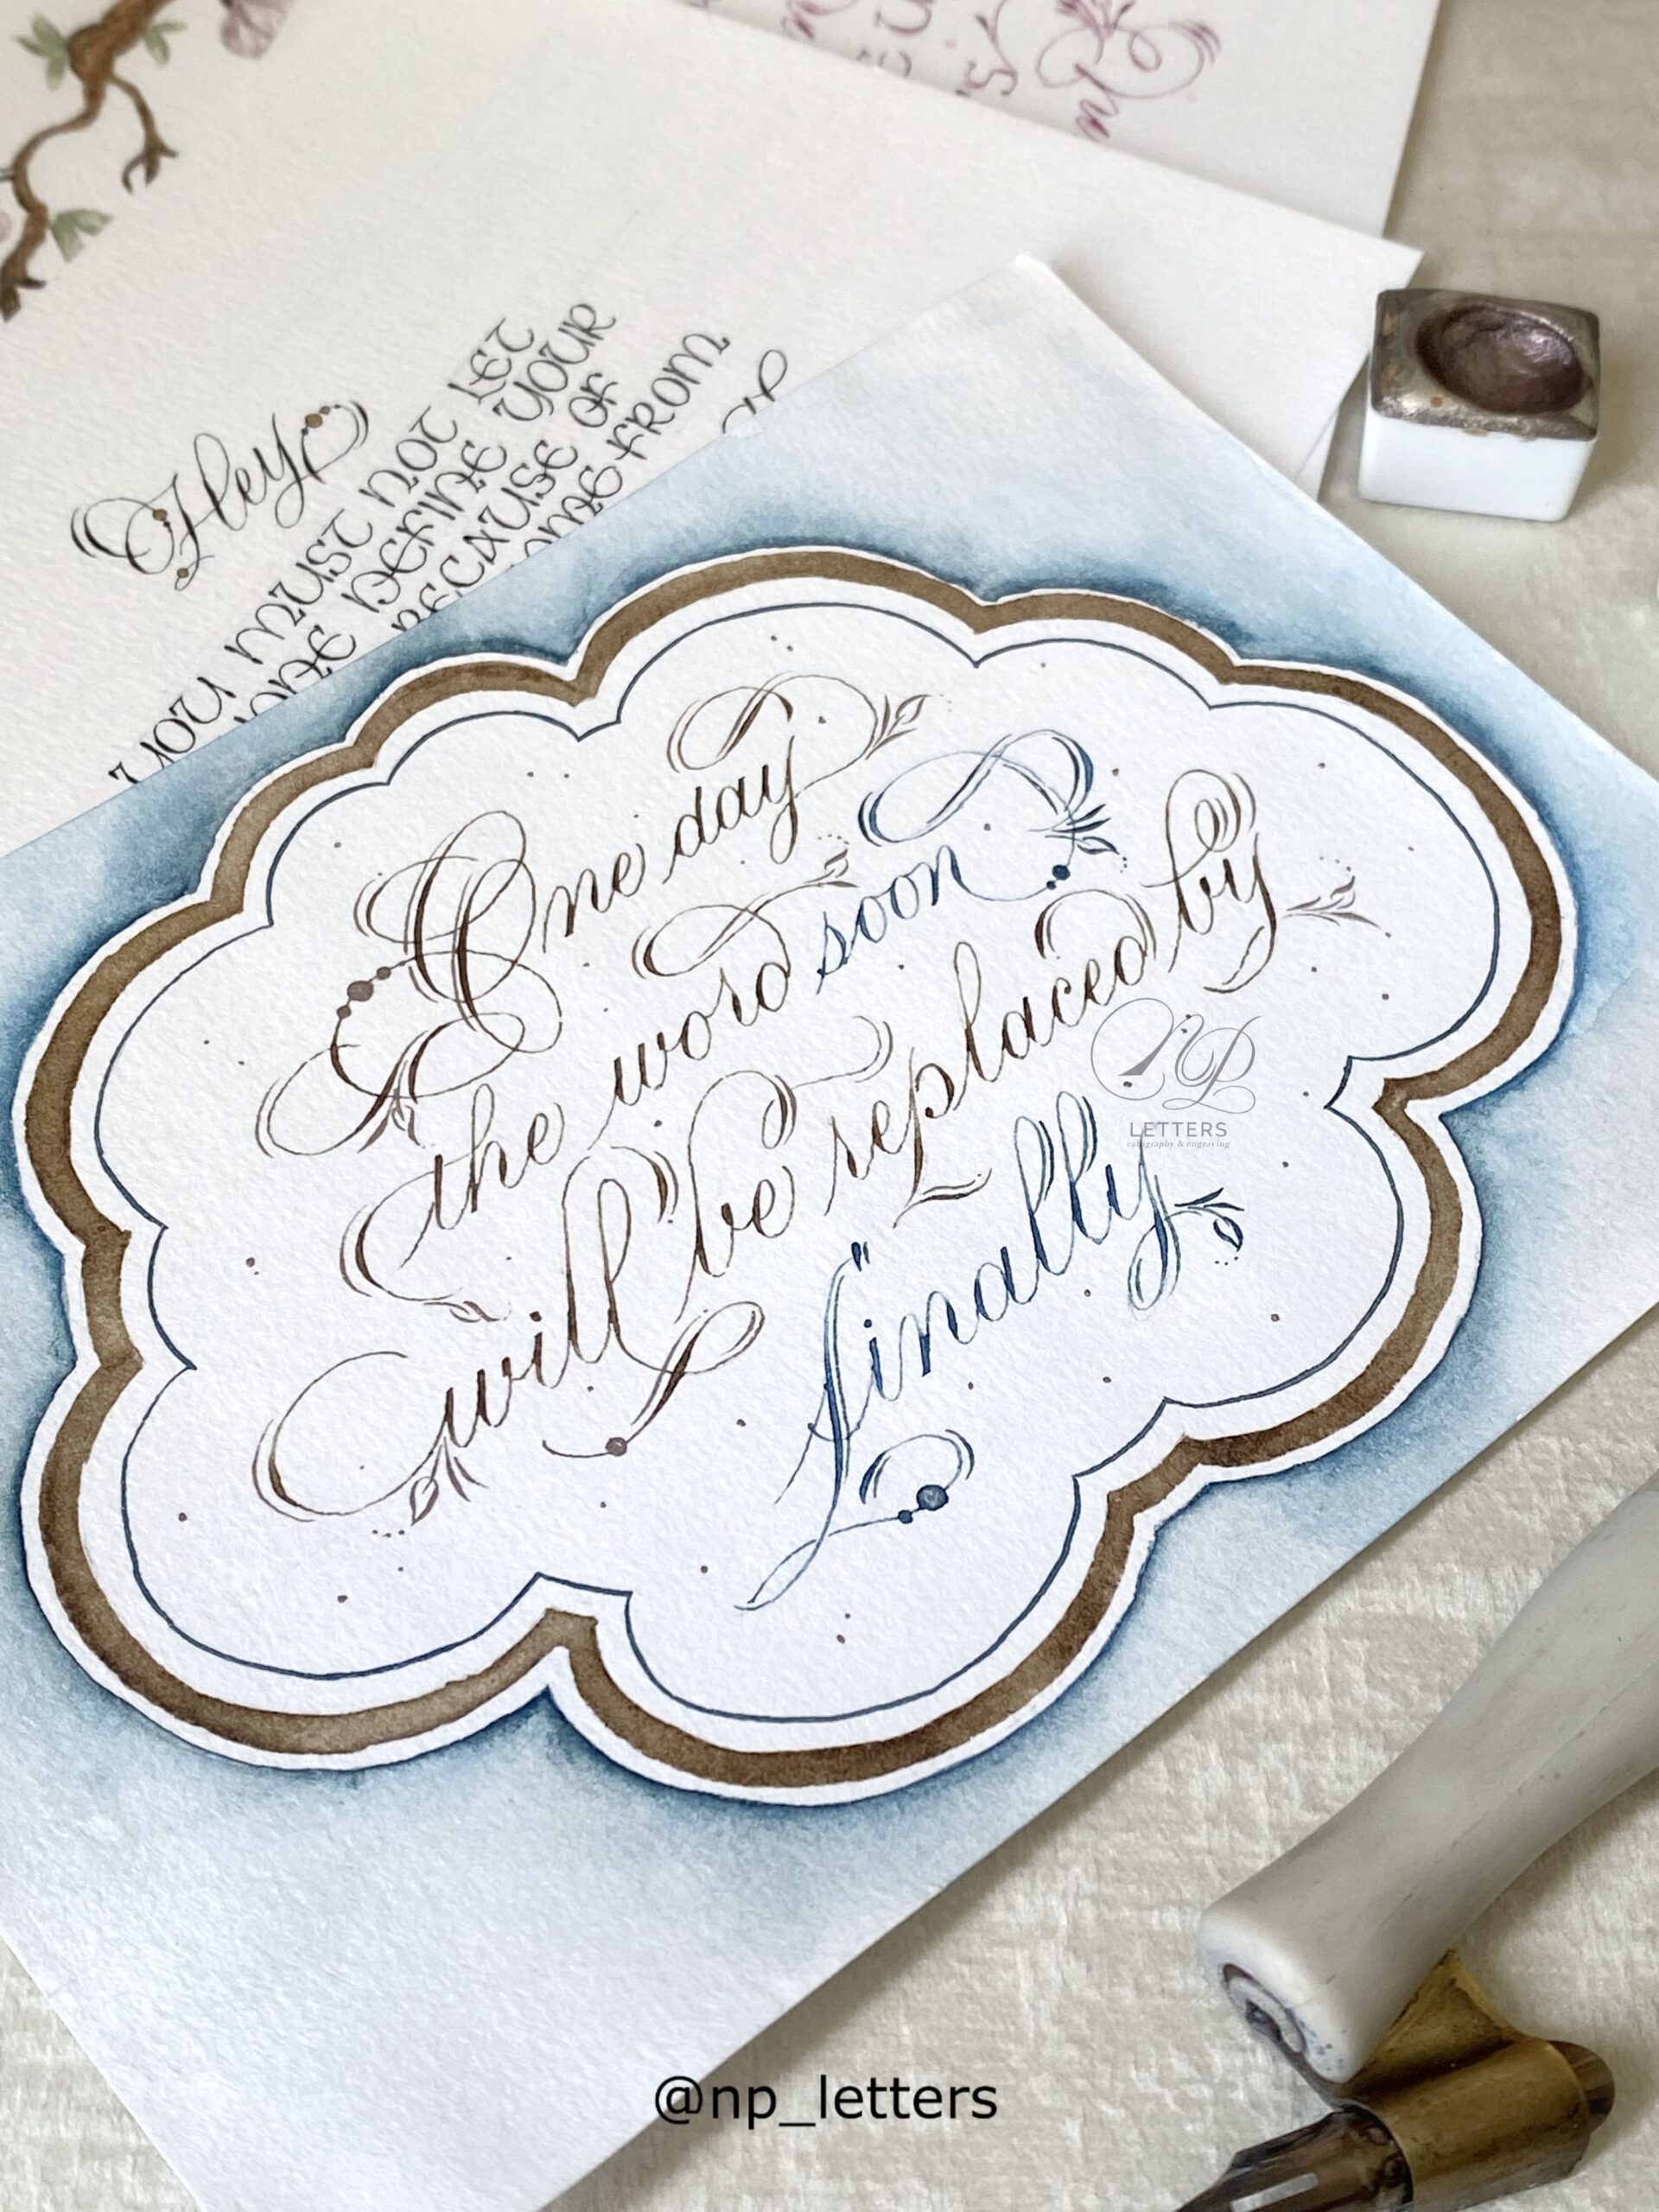 Hey
you must not let
one define your
because of
ome from
One day
the word soon
will be replaced by
"finally
NP
LETTERS
calligraphy & engraving
@np_letters